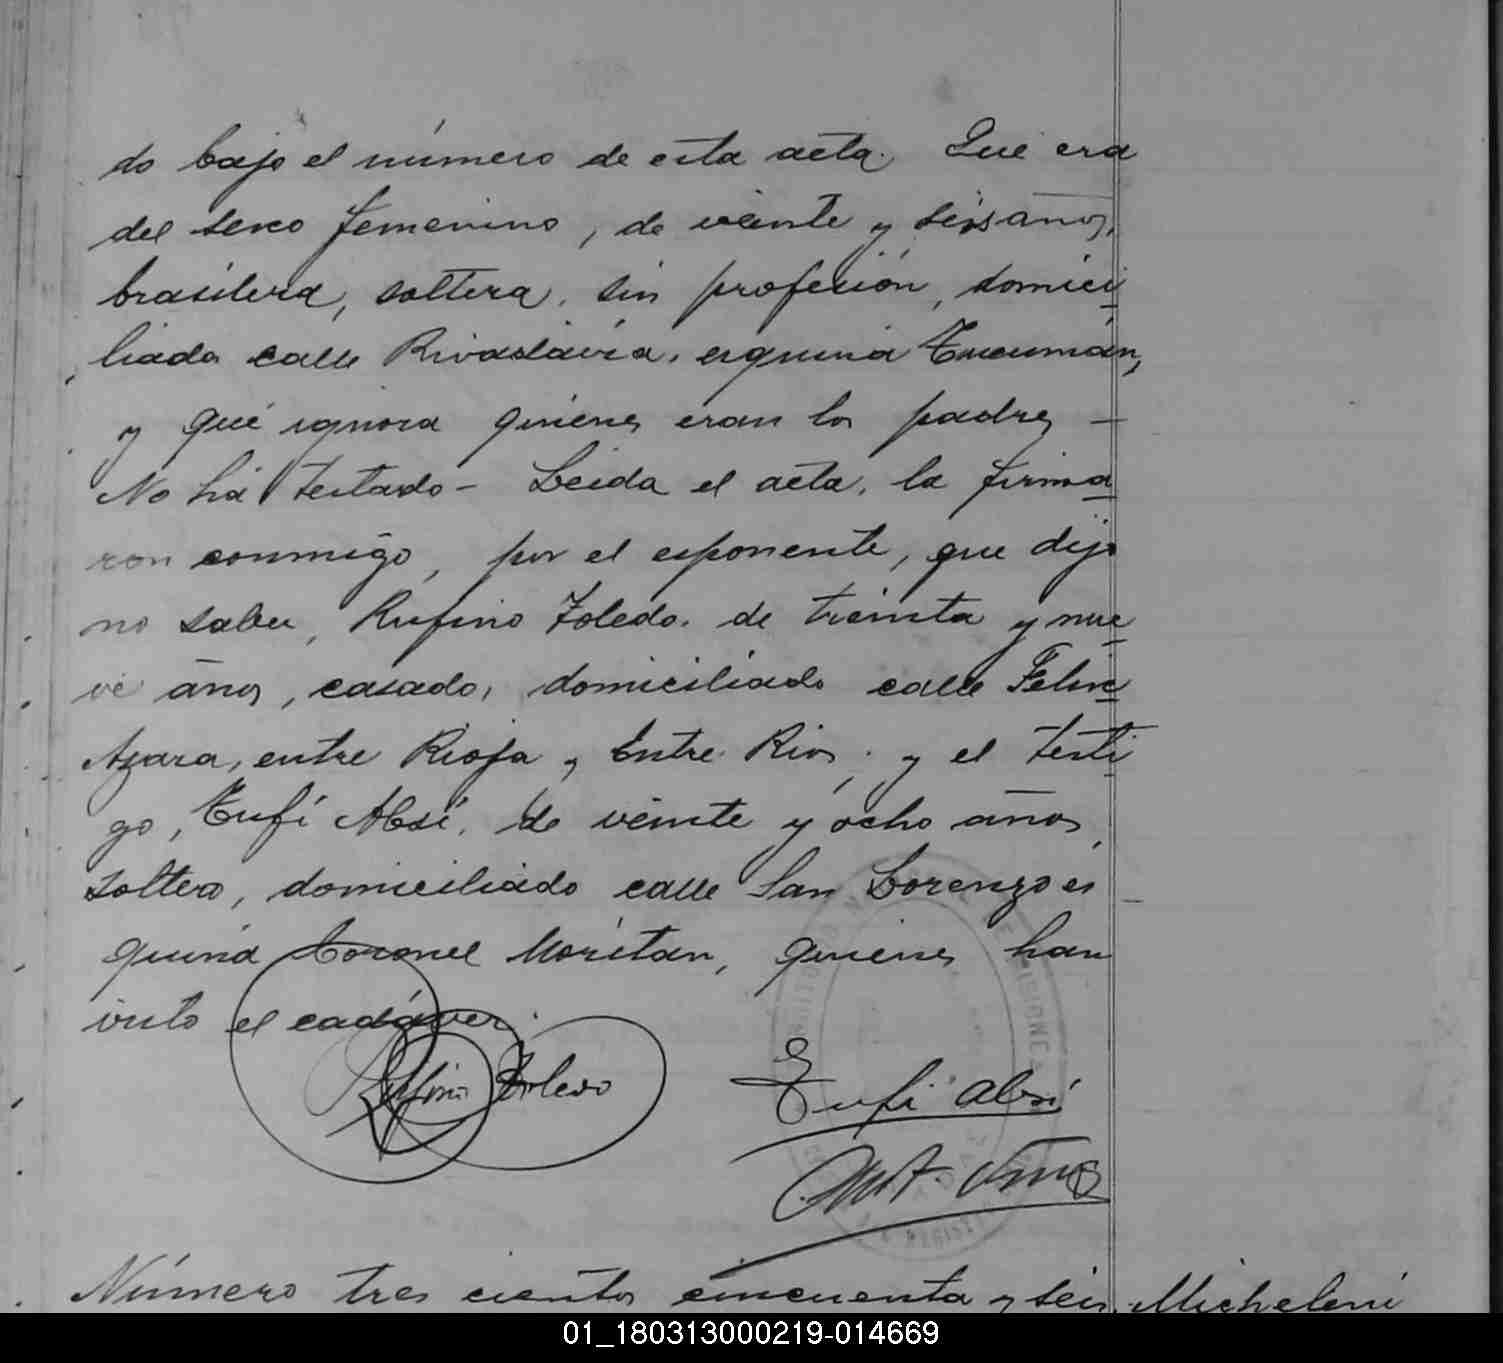 do bajo el número de esta acta. Que era
del sexo femenino, de veinte y seis años,
brasilera, soltera, sin profesión, domici
liada calle Rivadavia, esquina Tucumán,
y que ignora quienes eran los padres —
No há testado — Leida el acta, la firma
ron conmigo, por el esponente, que dijo
no saber, Rufino Toledo, de treinta y nue
ve años, casado, domiciliado calle Felix
Azara, entre Rioja y Entre Rios, y el testi
go, Tufí Absí, de veinte y ocho años,
soltero, domiciliado calle San Lorenzo es
quina Coronel Moritan, quienes han
visto el cadáver.
Rufino Toledo
Tufi Absi
Número tres cientos cincuenta y seis. Micheleni
01_180313000219-014669